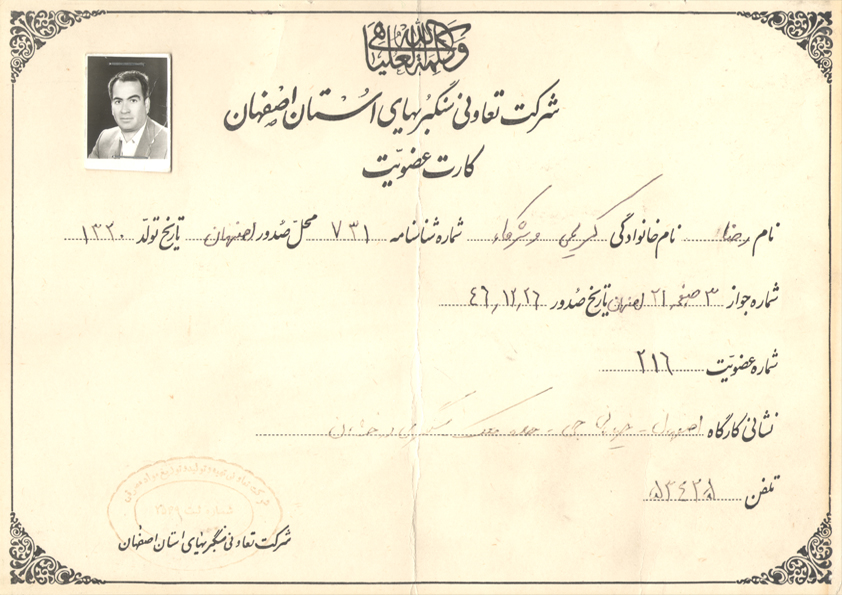 وکلمة الله هی العلیا
شرکت تعاونی سنگبریهای استان اصفهان
کارت عضویت
نام رضا نام خانوادگی کریمی و شرکاء شماره شناسنامه ۷۳۱ محل صدور اصفهان تاریخ تولد ۱۳۲۰
شماره جواز ۳ صفحه ۲۱ اصفهان تاریخ صدور ۴۶,۱۲,۲۶
شماره عضویت ۲۱۶
نشانی کارگاه اصفهان - جی - سنگبری درخشان
تلفن
شرکت تعاونی سنگبریهای استان اصفهان